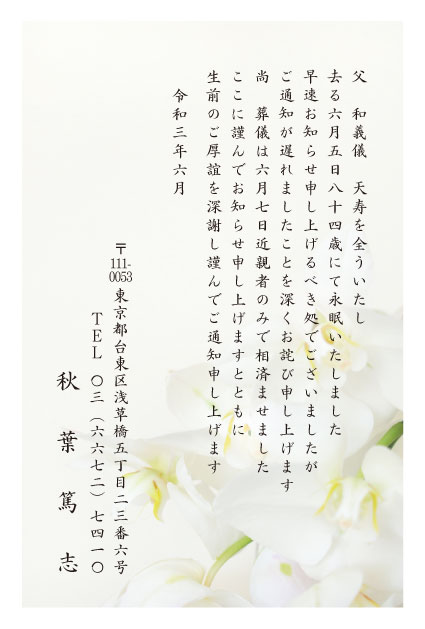 父　和義儀　天寿を全ういたし
去る六月五日八十四歳にて永眠いたしました
早速お知らせ申し上げるべき処でございましたが
ご通知が遅れましたことを深くお詫び申し上げます
尚　葬儀は六月七日近親者のみで相済ませました
ここに謹んでお知らせ申し上げますとともに
生前のご厚誼を深謝し謹んでご通知申し上げます
令和三年六月
〒111-0053 東京都台東区浅草橋五丁目二三番六号
TEL 〇三（六六七二）七四一〇
秋葉篤志